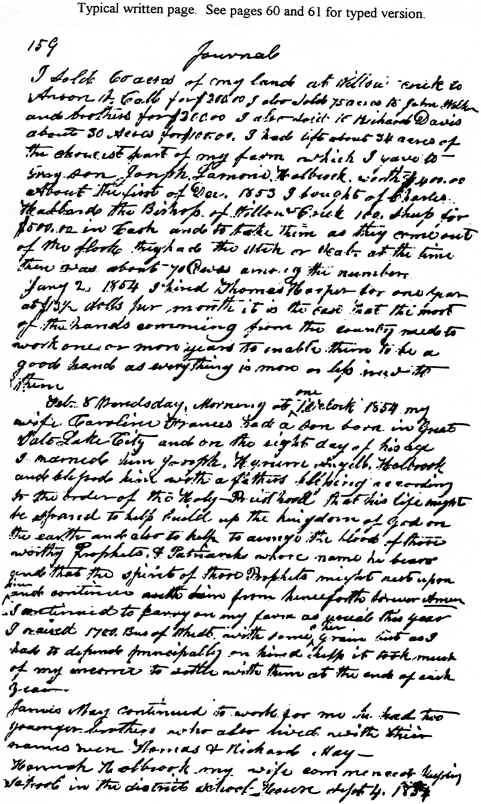 Typical written page. See pages 60 and 61 for typed version.
159
Journal
I Sold 60 acres of my land at Willow Crick to
Anson V. Call for $300.00 I also Sold 75 acres to John
and brothers for $300.00 I also sold to Richard Davis
about 30 Acres for $100.00. I had left about 34 acres of
the choicest part of my farm which I gave to
my son Joseph Lamoni Holbrook worth $400.00
About the first of Dec. 1853 I bought of Charles
Hubbard the Bishop of Willow Crick 100 Sheep for
$500.00 in Cash and to take them as they come out
of the flock they had the itch or scab at the time
there was about 70 Ewes among the number
Jany 2, 1854 I hired Thomas Harper for one year
at $13½ dolls per month it is the case that the most
of the hands comming from the county need to
work one or more years to enable them to be a
good hand as everything is more or less new to
them
Feb. 8 Wendsday, Morning at one Oclock 1854 my
wife Caroline Frances had a son born in Great
Salt Lake City and on the eight day of his age
I named him Joseph Hyrum Angell Holbrook
and blessed him with a fathers blessing according
to the order of the Holy Priesthood that his life might
be spared to help build up the kingdom of God on
the earth and also to help to avenge the blood of those
worthy Prophets & Patriarchs whose name he bears
and that the spirit of those Prophets might rest upon
him and continue with him from henceforth forever Amen
I continued to carry on my farm as usual this year
I raised 1700 Bus of Wheat with some other grain but as I
had to depend principally on hired help it took much
of my income to settle with them at the end of each
year
James May continued to work for me he had two
younger brothers who also lived with their
names were Thomas & Richard May
Hannah Holbrook my wife commenced keeping
School in the district School House Sept 4, 1854